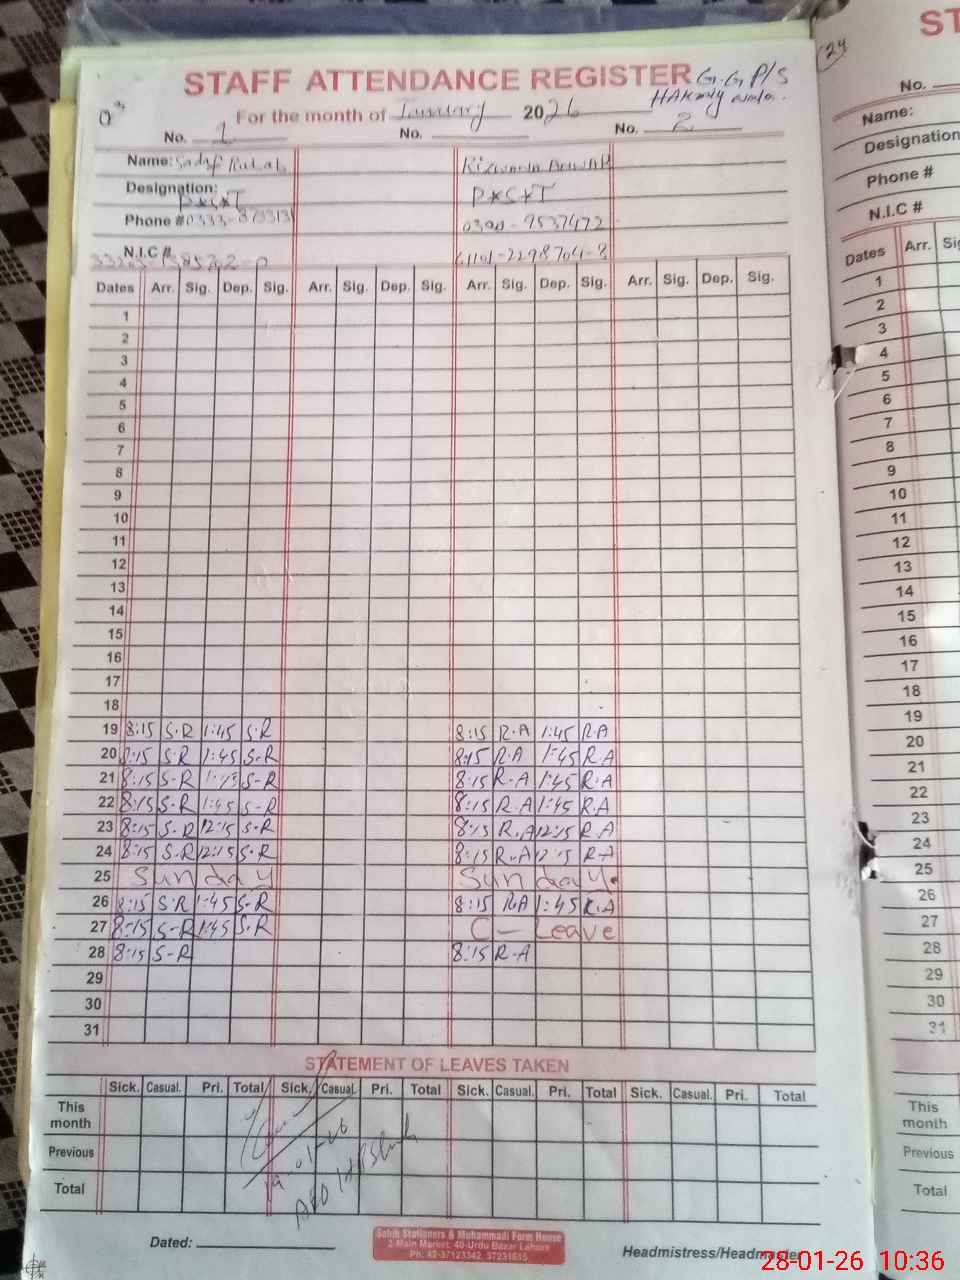 STAFF ATTENDANCE REGISTER G.G P/S
For the month of January 2026
No. 1 No. No. 2
Name: Sadaf
Designation: P*S*T P*S*T
Phone # 0333- 0300-9537472
N.I.C # 61101-2298704-8
Dates Arr. Sig. Dep. Sig. Arr. Sig. Dep. Sig. Arr. Sig. Dep. Sig. Arr. Sig. Dep. Sig.
1
2
3
4
5
6
7
8
9
10
11
12
13
14
15
16
17
18
19 8:15 S-R 1:45 S-R 8:15 R-A 1:45 R-A
20 8:15 S-R 1:45 S-R 8:15 R-A 1:45 R-A
21 8:15 S-R 1:45 S-R 8:15 R-A 1:45 R-A
22 8:15 S-R 1:45 S-R 8:15 R-A 1:45 R-A
23 8:15 S-R 12:15 S-R 8:15 R-A 12:15 R-A
24 8:15 S-R 12:15 S-R 8:15 R-A 12:15 R-A
25 Sunday Sunday.
26 8:15 S-R 1:45 S-R 8:15 R-A 1:45 R-A
27 8:15 S-R 1:45 S-R C- Leave
28 8:15 S-R 8:15 R-A
29
30
31
STATEMENT OF LEAVES TAKEN
Sick. Casual. Pri. Total Sick. Casual. Pri. Total Sick. Casual. Pri. Total Sick. Casual. Pri. Total
This month
Previous
Total
Dated:
Sahib Stationers & Muhammadi Form House
2-Main Market, 40-Urdu Bazar Lahore
Ph: 42-37123342, 37231615
Headmistress/Headmaster
ST
No.
Name:
Designation
Phone #
N.I.C #
Dates Arr. Sig
1
2
3
4
5
6
7
8
9
10
11
12
13
14
15
16
17
18
19
20
21
22
23
24
25
26
27
28
29
30
31
This month
Previous
Total
28-01-26 10:36